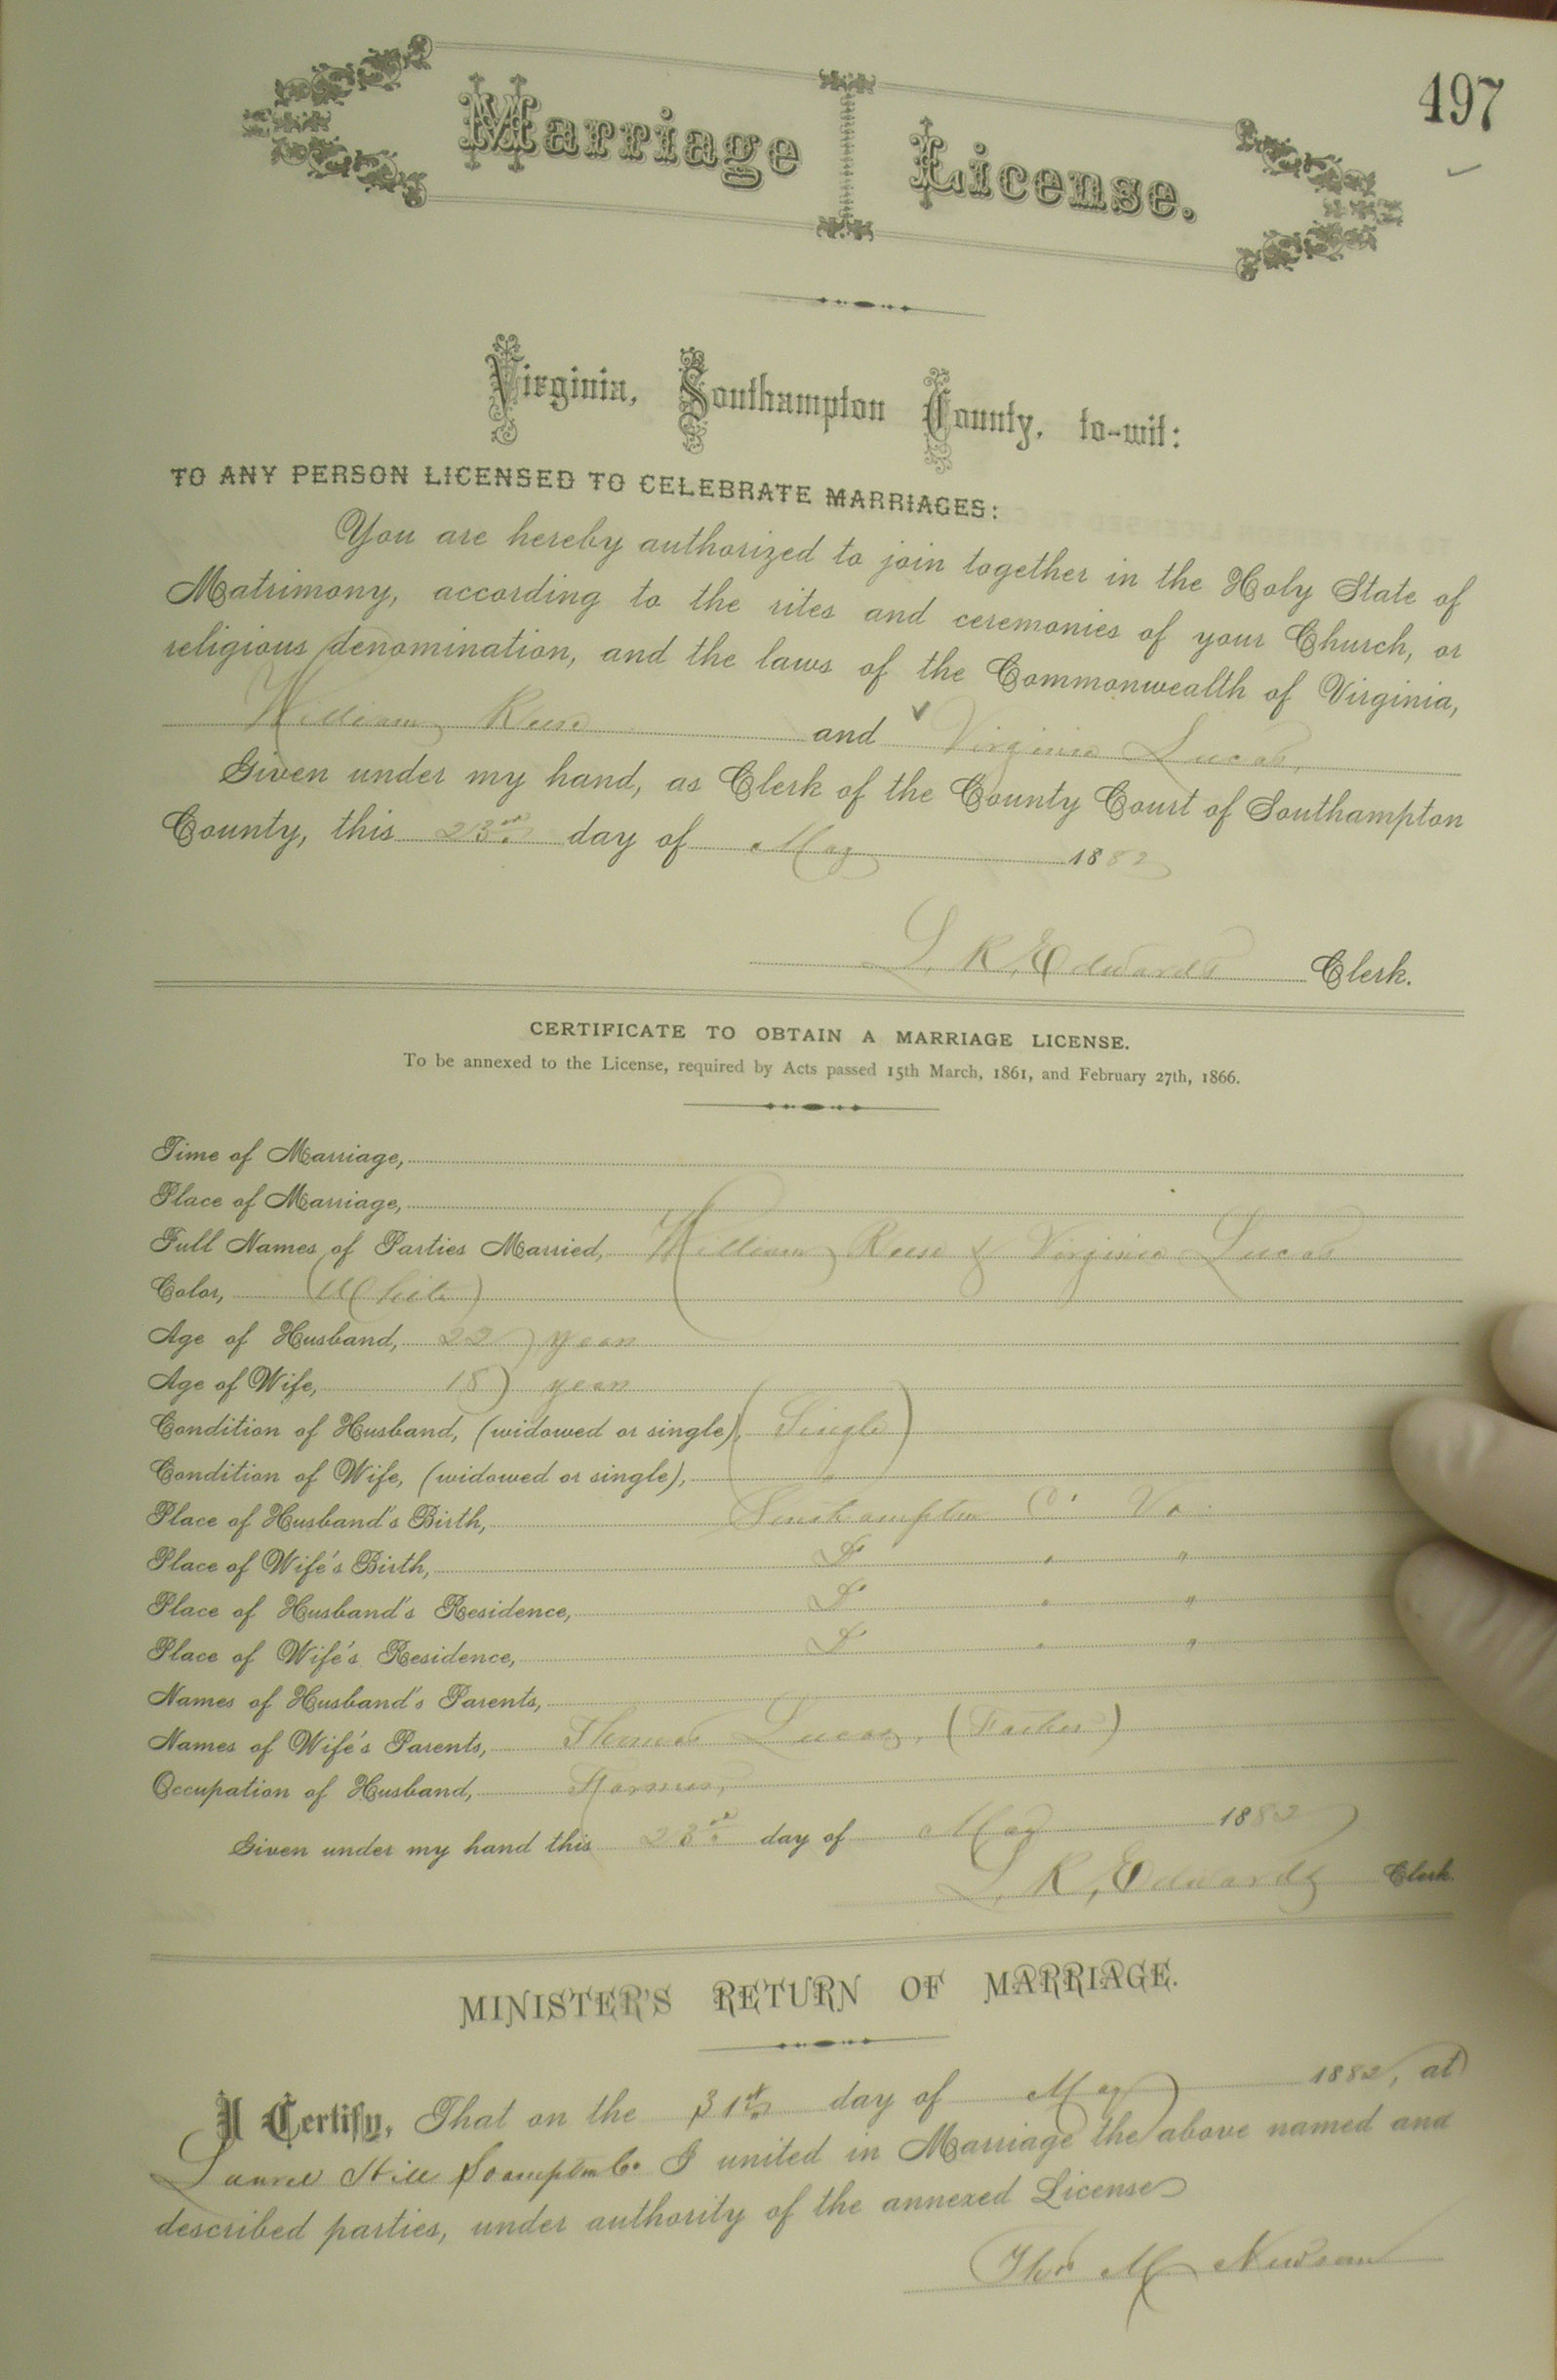 497
Marriage License.
Virginia, Southampton County, to-wit:
TO ANY PERSON LICENSED TO CELEBRATE MARRIAGES:
You are hereby authorized to join together in the Holy State of
Matrimony, according to the rites and ceremonies of your Church, or
religious denomination, and the laws of the Commonwealth of Virginia,
William Reese and Virginia Lucas,
Given under my hand, as Clerk of the County Court of Southampton
County, this 23rd day of May 1882
L. R. Edwards Clerk.
CERTIFICATE TO OBTAIN A MARRIAGE LICENSE.
To be annexed to the License, required by Acts passed 15th March, 1861, and February 27th, 1866.
Time of Marriage,
Place of Marriage,
Full Names of Parties Married, William Reese & Virginia Lucas
Color, (White)
Age of Husband, 22 years
Age of Wife, 18 years
Condition of Husband, (widowed or single), (Single)
Condition of Wife, (widowed or single),
Place of Husband's Birth, Southampton Co. Va.
Place of Wife's Birth, Do " "
Place of Husband's Residence, Do " "
Place of Wife's Residence, Do " "
Names of Husband's Parents,
Names of Wife's Parents, Thomas Lucas, (Father)
Occupation of Husband, Farmer,
Given under my hand this 23rd day of May 1882
L. R. Edwards Clerk
MINISTER'S RETURN OF MARRIAGE.
I Certify, That on the 31st day of May 1882, at
Laurel Hill Sampton Co. I united in Marriage the above named and
described parties, under authority of the annexed License
Thos M Newsom